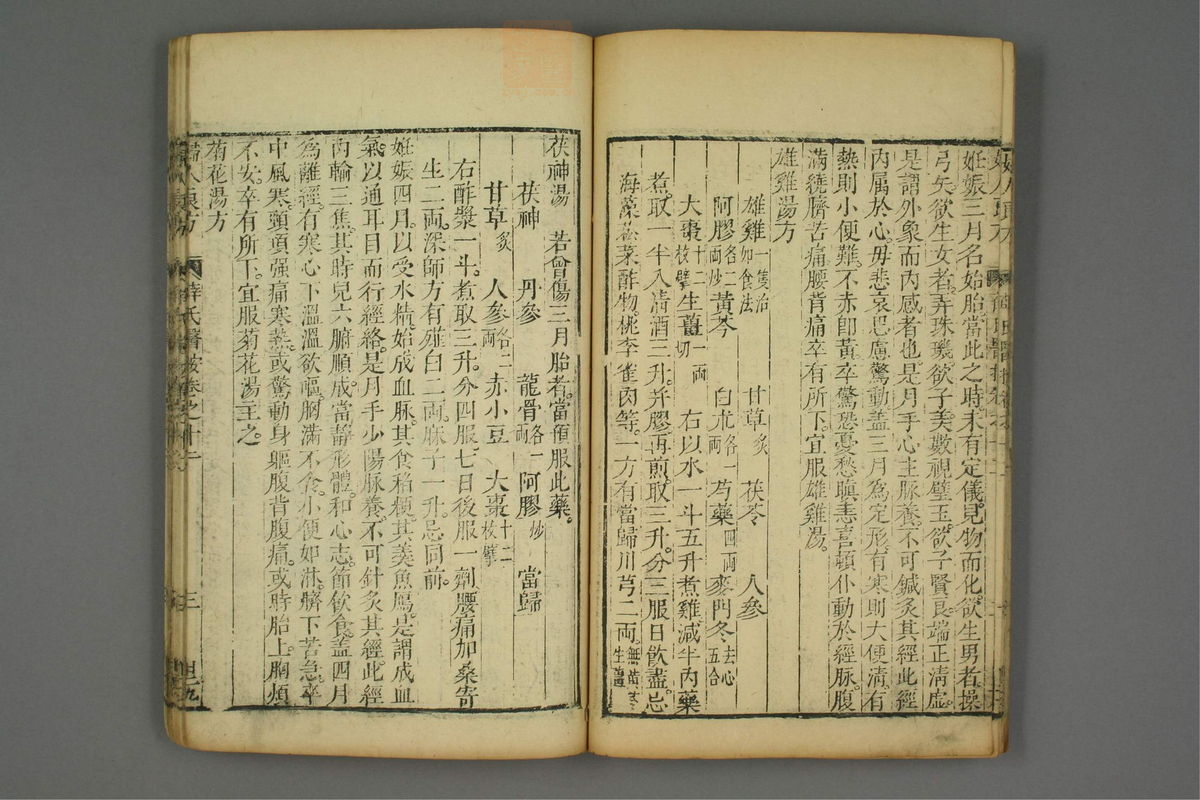 妊娠三月名始胎當此之時未有定儀見物而化欲生男者操
弓矢欲生女者弄珠璣欲子美數視璧玉欲子賢良端正清虛
是謂外象而內感者也是月手心主脉養不可鍼灸其經此經
內属於心毋悲哀思慮驚動盖三月爲定形有寒則大便清有
熱則小便難不赤卽黃卒驚恐憂愁嗔恚喜頓仆動於經脉腹
滿繞臍苦痛腰背痛卒有所下宜服雄雞湯
雄雞湯方
雄雞一隻治如食法 甘草炙 茯苓 人參
阿膠各二両炒 黃芩 白朮各一両 芍藥四両 麥門冬去心五合
大棗十二枚擘 生薑一両切 右以水一斗五升煮雞減半內藥
煮取一半入清酒三升并膠再煎取三升分三服日飲盡忌
海藻菘菜酢物桃李雀肉等一方有當歸川芎二両
茯神湯 若曾傷三月胎者當預服此藥
茯神 丹參 龍骨各一両 阿膠炒 當歸
甘草炙 人參各二両 赤小豆 大棗十二枚擘
右酢漿一斗煮取三升分四服七日後服一劑腰痛加桑寄
生二両深師方有薤白二両麻子一升忌同前
妊娠四月以受水精始成血脉其食稻粳其羹魚鴈是謂成血
氣以通耳目而行經絡是月手少陽脉養不可針灸其經此經
內輸三焦其時兒六腑順成當静形體和心志節飲食盖四月
爲離經有寒心下溫溫欲嘔胸滿不食小便如淋臍下苦急卒
中風寒頭項强痛寒熱或驚動身軀腹背腹痛或時胎上胸煩
不安卒有所下宜服菊花湯主之
菊花湯方
婦人良方 薛氏醫按卷之十二 三